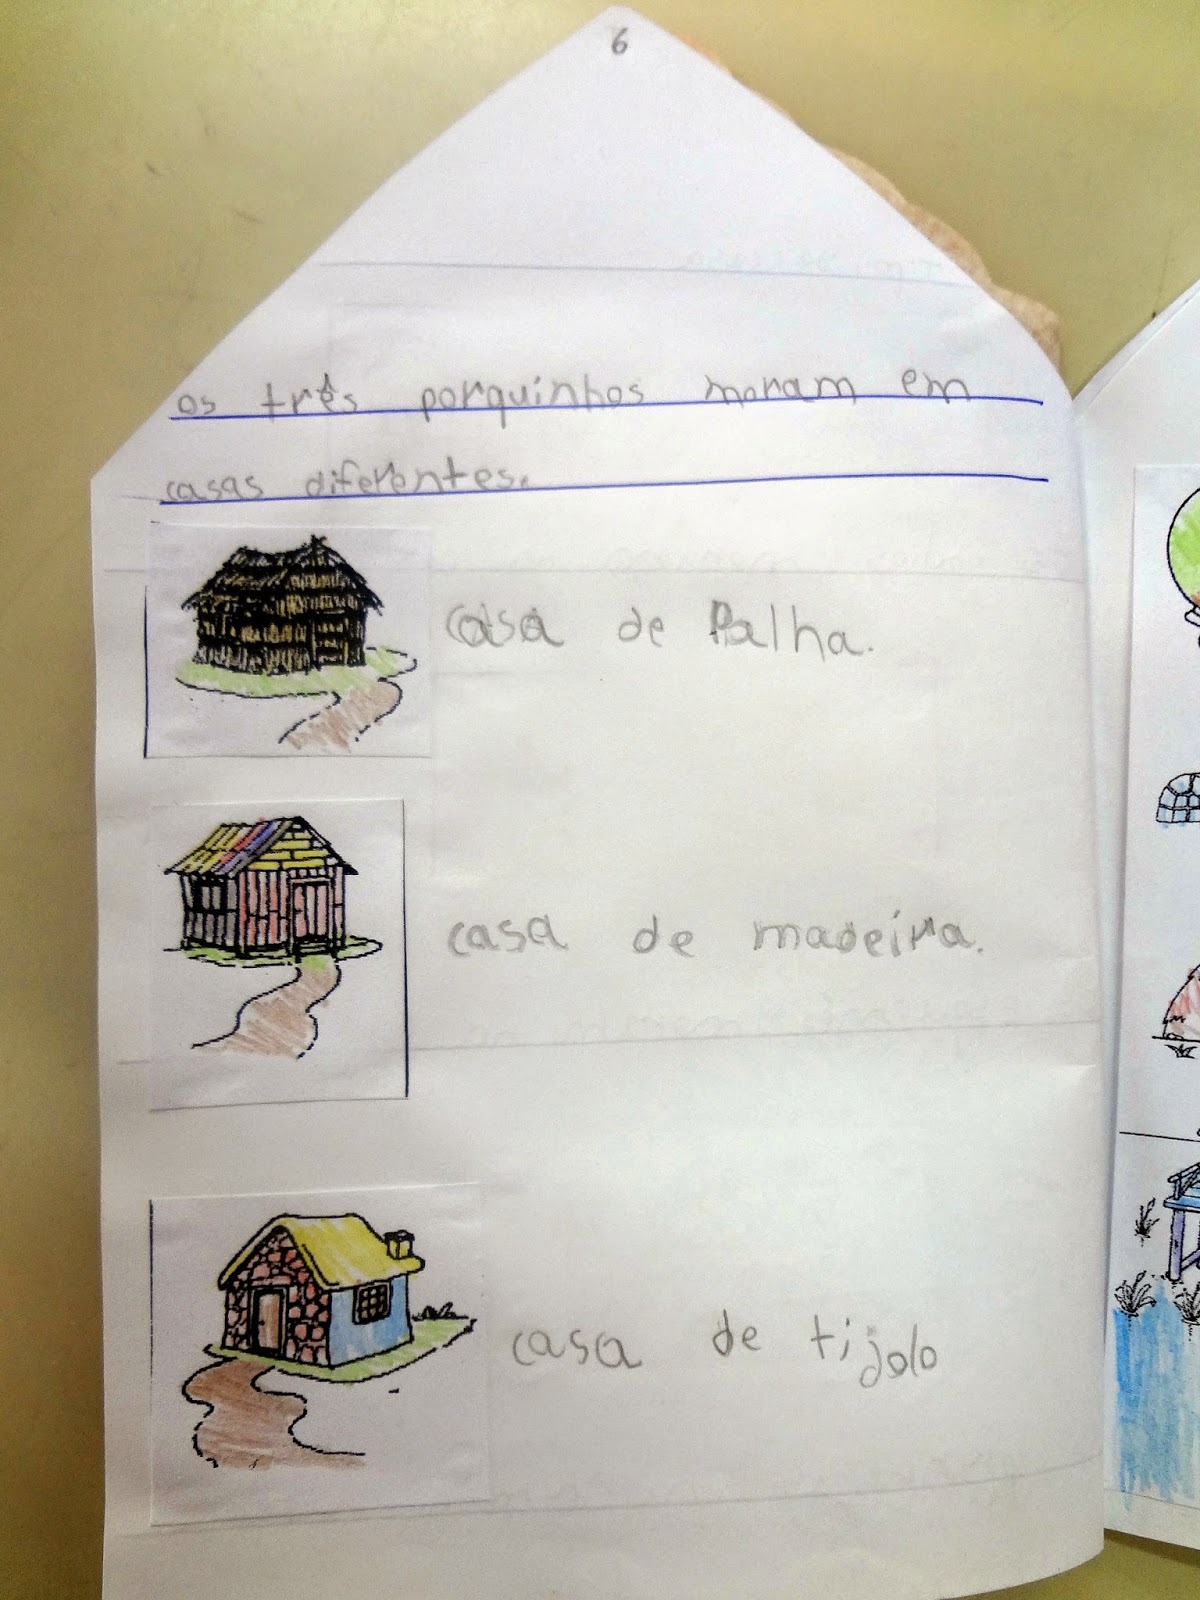 6
os três porquinhos moram em
casas diferentes.
casa de Palha.
casa de madeira.
casa de tijolo